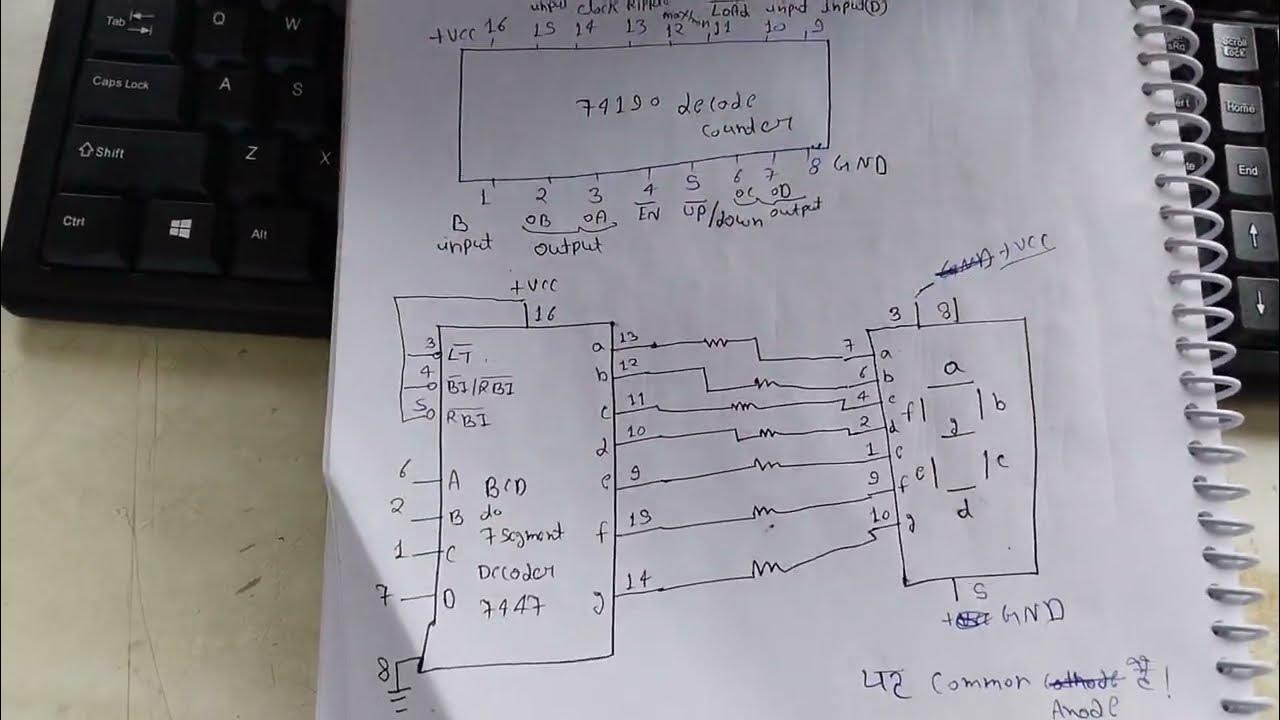 Tab
Q
W
Caps Lock
A
S
Shift
Z
X
Ctrl
Alt
Scroll
Lock
Home
End
input clock Ripple max/min LOAD input Input(D)
+VCC 16 15 14 13 12 11 10 9
74190 decode
counder
1 2 3 4 5 6 7 8 GND
B OB OA EN UP/down OC OD
input output output
+VCC
16
3 LT
4 BI/RBI
5 RBI
6 A
2 B
1 C
7 D
8
BCD
do
7 segment
Decoder
7447
a 13
b 12
c 11
d 10
e 9
f 15
g 14
+VCC
3 8
7 a
6 b
4 c
2 d
1 e
9 f
10 g
a
f b
g
e c
d
5
GND
यह common Cathode है!
Anode